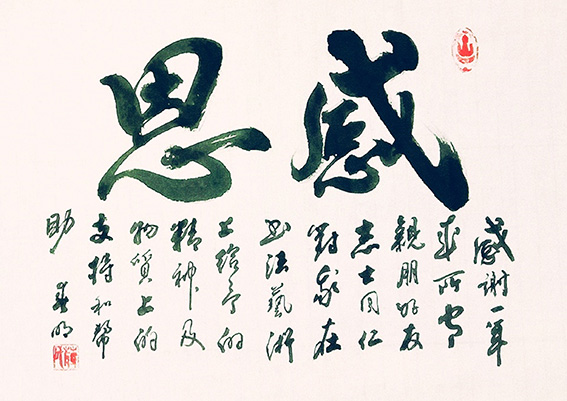 感恩
感謝一年
來所有
親朋好友
志士同仁
對我在
书法藝術
上给予的
精神及
物質上的
支持和幫
助
春明